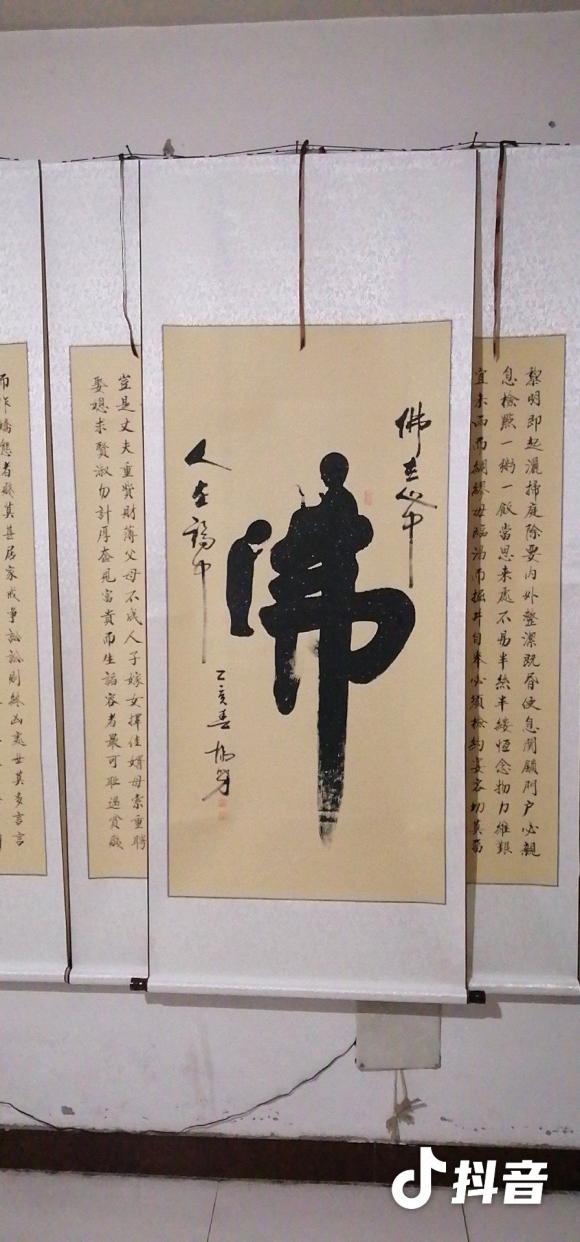 黎明即起灑掃庭除要內外整潔既昏便息関鎖門户必親
息檢點一粥一飯當思来處不易半絲半縷恆念物力維艱
宜未雨而綢繆毋臨渴而掘井自奉必須檢約宴客切莫留
佛在心中
佛
人在福中
乙亥春
豈是丈夫重貲財薄父母不成人子嫁女擇佳婿毋索重聘
娶媳求賢淑勿計厚奩見富貴而生諂容者最可耻遇貧賤
而作驕態者賤莫甚居家戒爭訟訟則終凶處世莫多言言
抖音